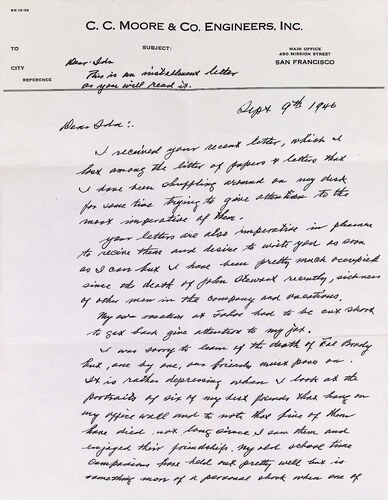 C. C. MOORE & CO. ENGINEERS, INC.
TO
SUBJECT:
MAIN OFFICE
450 MISSION STREET
SAN FRANCISCO
CITY
REFERENCE
Dear Ida
This is an installment letter
as you will read it.
Sept 9th 1940
Dear Ida:
I received your recent letter, which I
lost among the litter of papers & letters that
I have been shuffling around on my desk
for some time trying to give attention to the
most imperative of them.
Your letters are also imperative in pleasure
to receive them and desire to write you as soon
as I can but I have been pretty much occupied
since the death of John Stewart recently, sickness
of other men in the company and vacations.
My own vacation at Tahoe had to be cut short
to get back give attention to my job.
I was sorry to learn of the death of Brady
but, one by one, our friends must pass on.
It is rather depressing when I look at the
portraits of six of my best friends that hang on
my office wall and to note that five of them
have died not long since I saw them and
enjoyed their friendship. My old school time
companions have held out pretty well but is
something more of a personal shock when one of